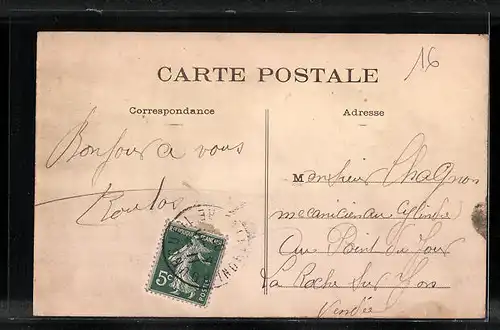 16
CARTE POSTALE
Correspondance
Adresse
Bonjour a vous
Monsieur Chagnon
mecanicien au
au Point du Jour
La Roche sur Yon
Vendée
REPUBLIQUE FRANÇAISE
5c
POSTES